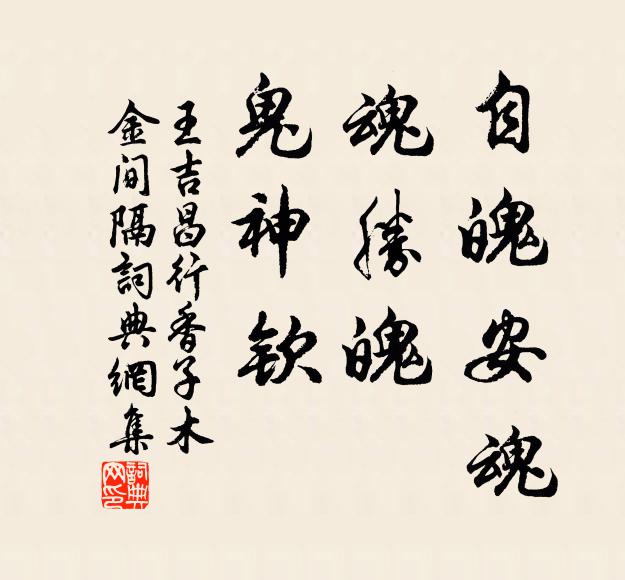 自魄安魂
魂勝魄
鬼神欽
王吉昌行香子木
金間隔詞典網集
詞典網印